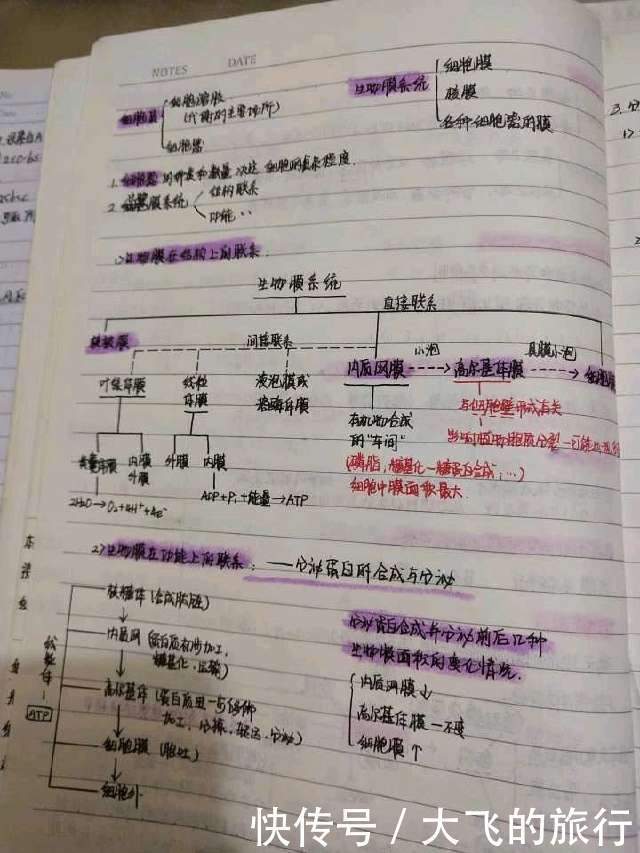 NOTES DATE
细胞质
细胞溶胶
(代谢的主要场所)
细胞器
生物膜系统
细胞膜
核膜
各种细胞器的膜
1. 细胞器的种类和数量决定细胞的复杂程度.
2. 生物膜系统
结构联系
功能 ..
1)生物膜在结构上的联系.
生物膜系统
直接联系
核被膜
间接联系
叶绿体膜
线粒体膜
液泡膜或
溶酶体膜
内质网膜
小泡
高尔基体膜
具膜小泡
细胞膜
类囊体膜
内膜
外膜
外膜
内膜
2H₂O→O₂+4H⁺+4e⁻
ADP+Pi+能量→ATP
有机物合成
的"车间"
(磷脂, 糖基化—糖蛋白合成, …)
细胞中膜面积最大
与细胞壁形成有关
2)生物膜在功能上的联系: ——分泌蛋白的合成与分泌
核糖体 (合成肽链)
内质网 (蛋白质初步加工,
糖基化, 运输)
高尔基体 (蛋白质进一步修饰
加工, 分拣, 转运, 分泌)
细胞膜 (胞吐)
细胞外
线粒体
ATP
分泌蛋白合成并分泌前后几种
生物膜面积的变化情况.
内质网膜↓
高尔基体膜—不变
细胞膜↑
快传号 / 大飞的旅行